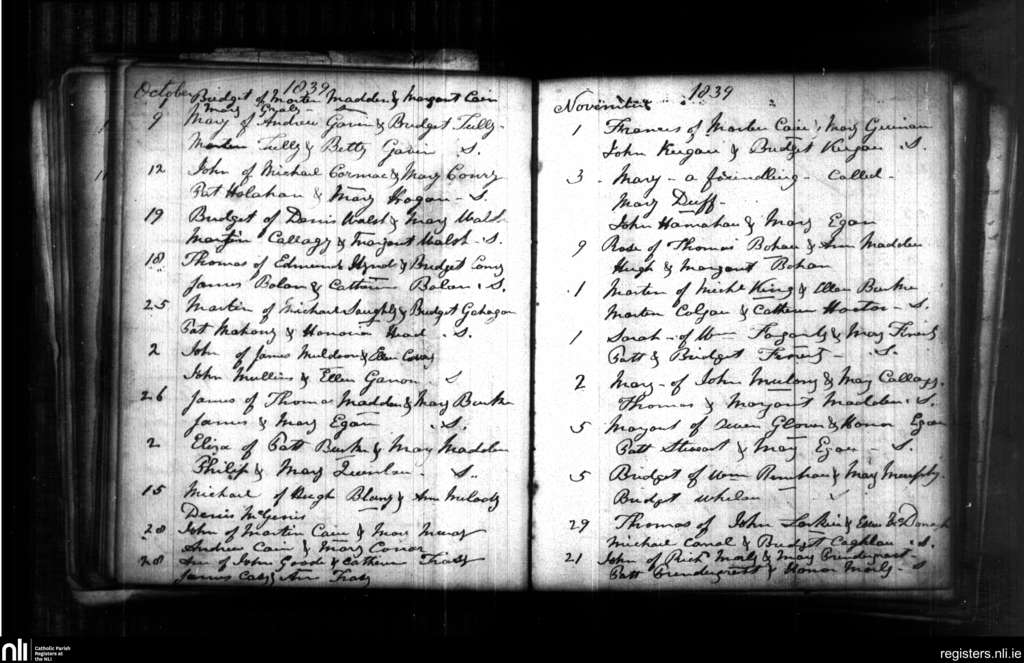 October 1839
Bridget of Martin Madden & Margaret Cain
Mary
9 Mary of Andrew Gavin & Bridget Tully
Martin Tully & Betty Gavin .S.
12 John of Michael Cormac & Mary Conry
Pat Holahan & Mary Hogan - S.
19 Bridget of Denis Walsh & Mary Walsh
Martin Callagy & Margaret Walsh .S.
18 Thomas of Edmund & Bridget Conry
James Bolan & Catherine Bolan .S.
25 Martin of Michael & Bridget Gahagan
Pat Mahony & Honoria Head .S.
2 John of James Muldoon & Ellen
John Mullins & Ellen Ganon S
26 James of Thomas Madden & Mary Burke
James & Mary Egan .S.
2 Eliza of Patt Burke & Mary Madden
Philip & Mary Quinlan S.
15 Michael of Hugh & Ann
Denis McGinis
28 John of Martin Cain & Mary
Andrew Cain & Mary Conor
28 Ann of John Goode & Catherine
James & Ann
1839
November
1 Francis of Martin Cain & Mary Guinan
John Keegan & Bridget Keegan .S.
3 - Mary - a foundling - called
Mary Duff -
John Hanrahan & Mary Egan
9 Rose of Thomas Bohan & Ann Madden
Hugh & Margaret Bohan
1 Martin of Michl King & Ellen Burke
Martin Colgan & Catherine .S.
1 Sarah - of Wm Fogarty & Mary
Patt & Bridget - S.
2 Mary - of John & Mary Callagy
Thomas & Margaret Madden .S.
5 Margaret of Owen Glover & Honor Egan
Patt Stewart & Mary Egan - S.
5 Bridget of Wm & Mary Murphy
Bridget Whelan
29 Thomas of John Larkin & McDonagh
Michael & Bridget Coghlan .S.
21 John of Richd & Mary Prendergast -
Patt Prendergast & Honor - S
nli
Catholic Parish
Registers at
the NLI
registers.nli.ie